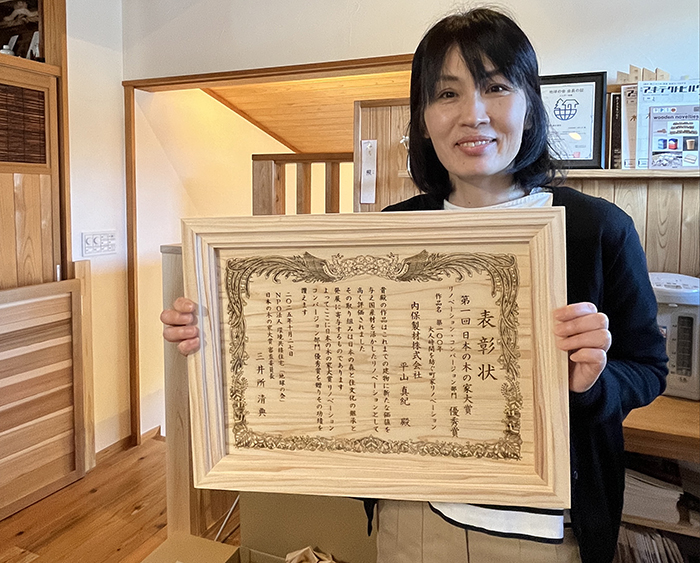 表彰状
第一回日本の木の家大賞
リノベーション・コンバージョン部門 優秀賞
作品名 築一〇〇年
大人時間を紡ぐ町家リノベーション
内保製材株式会社
平山真紀 殿
貴殿の作品はこれまでの建物に新たな価値を
与え国産材を活かしたリノベーションとして
高く評価されました
その取り組みは日本の森と住文化の継承と
発展に寄与するものであります
よってここに日本の木の家大賞リノベーション
コンバージョン部門優秀賞を贈りその功績を
讃えます
二〇二五年十月二七日
NPO法人 環境共棲住宅「地球の会」
日本の木の家大賞 審査委員長
三井所 清典
wooden novelties